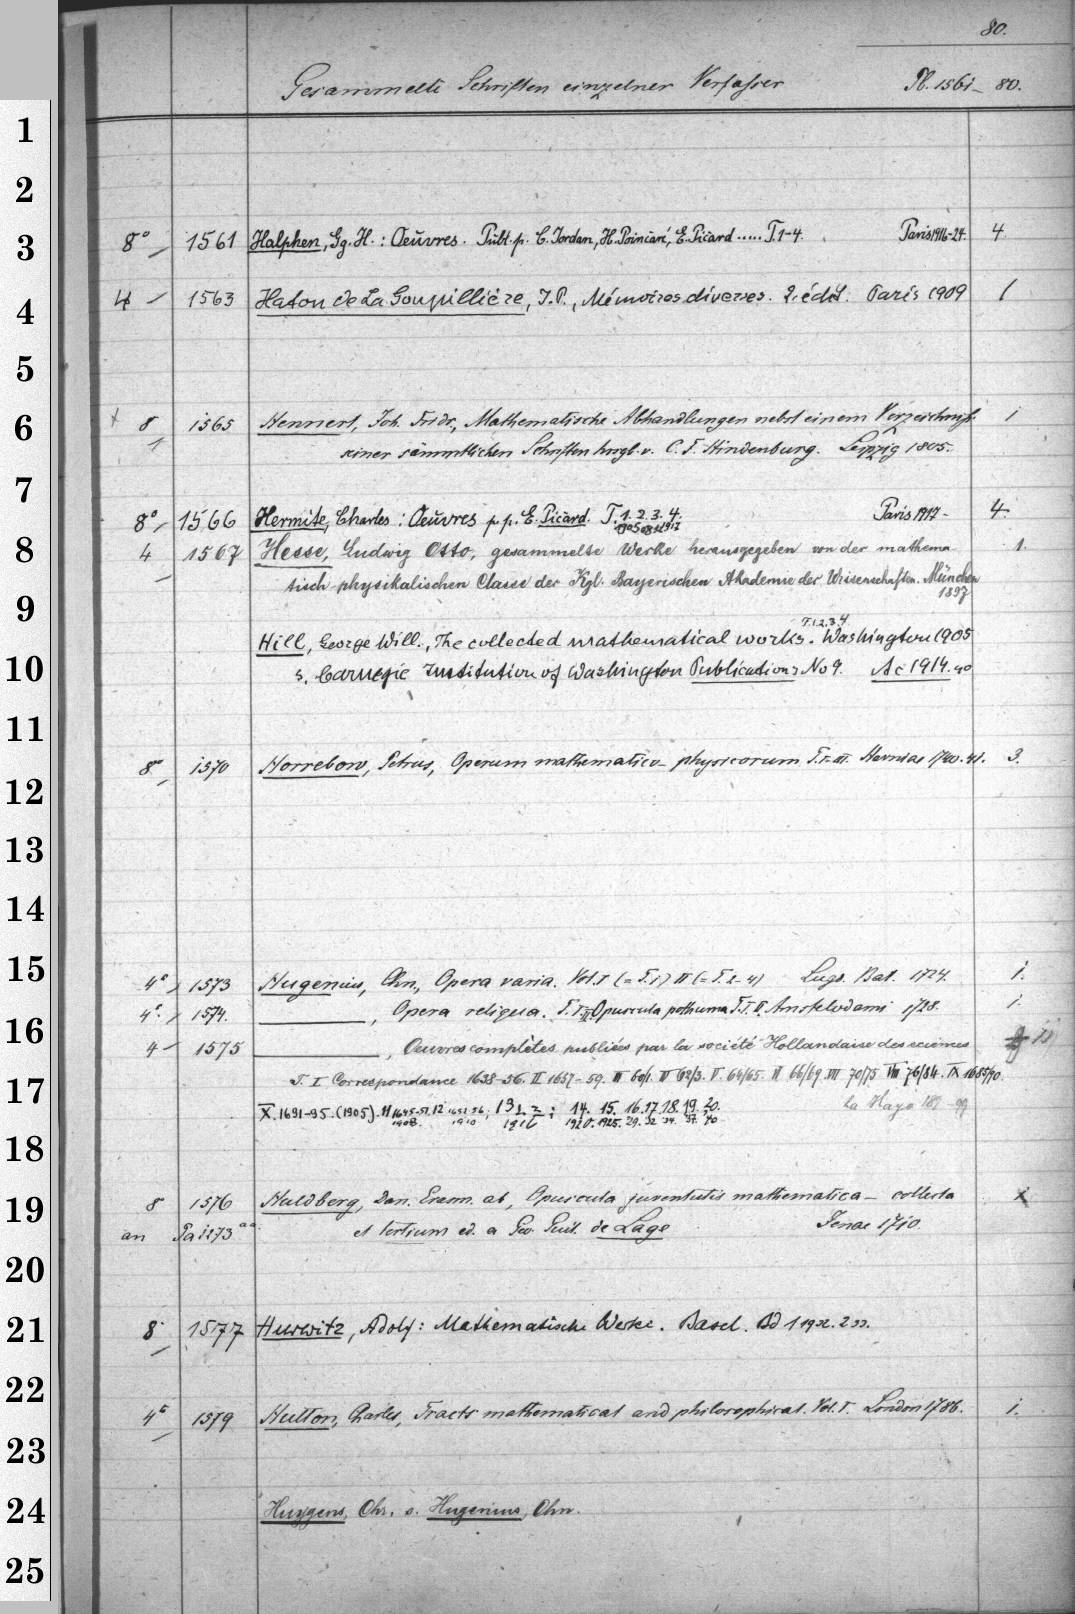 80.
Gesammelte Schriften einzelner Verfasser Pb. 1561-80.
1
2
3 8° 1561 Halphen, Gg. H.: Oeuvres. Publ. p. C. Jordan, H. Poincaré, E. Picard ..... T. 1-4. Paris 1916-24. 4
4 4 1563 Haton de La Goupillière, J. P., Mémoires diverses. 2. édit. Paris 1909 1
5
6 8 1565 Hennert, Joh. Fridr., Mathematische Abhandlungen nebst einem Verzeichniß 1
seiner sämmtlichen Schriften hrsgb. v. C. F. Hindenburg. Leipzig 1805.
7
8° 1566 Hermite, Charles: Oeuvres p. p. E. Picard. T. 1. 2. 3. 4. Paris 1917- 4
8 4 1567 Hesse, Ludwig Otto, gesammelte Werke herausgegeben von der mathema- 1.
tisch physikalischen Classe der Kgl. Bayerischen Akademie der Wissenschaften. München
1897
9
T. 1. 2. 3. 4.
Hill, George Will., The collected mathematical works. Washington 1905
10 s. Carnegie Institution of Washington Publications No 9. Ac 1914. 40
11
8° 1570 Horrebow, Petrus, Operum mathematico-physicorum T. I-III. Havniae 1740. 41. 3.
12
13
14
15 4° 1573 Hugenius, Chn., Opera varia. Vol. I (= T. 1) II (= T. 2-4) Lugd. Bat. 1724. 1.
4° 1574. , Opera reliqua. T. I. II. Opuscula posthuma T. I. II. Amstelodami 1728. 1.
16 4 1575 , Oeuvres complètes publiées par la société Hollandaise des sciences
17 T. I Correspondance 1638-56. II 1657-59. III 60/1. IV 62/3. V. 64/65. VI 66/69. VII 70/75 VIII 76/84. IX 1685/90.
La Haye
X. 1691-95. (1905). 11 1645-51. 12 1651-56; 13 1. 2; 14. 15. 16. 17. 18. 19. 20.
1908. 1910 1916 1920. 1925. 29. 32 34. 37. 40
18
19 8 1576 Huldberg, Dan. Erasm. ab, Opuscula juventutis mathematica- collecta
an Pa 1273 aa. et tertium ed. a Geo. Guil. de Lage Jenae 1710.
20
21 8° 1577 Hurwitz, Adolf: Mathematische Werke. Basel. Bd 1 1932. 2 33.
22
4° 1579 Hutton, Charles, Tracts mathematical and philosophical. Vol. I. London 1786. 1.
23
24 Huygens, Chr. s. Hugenius, Chn.
25